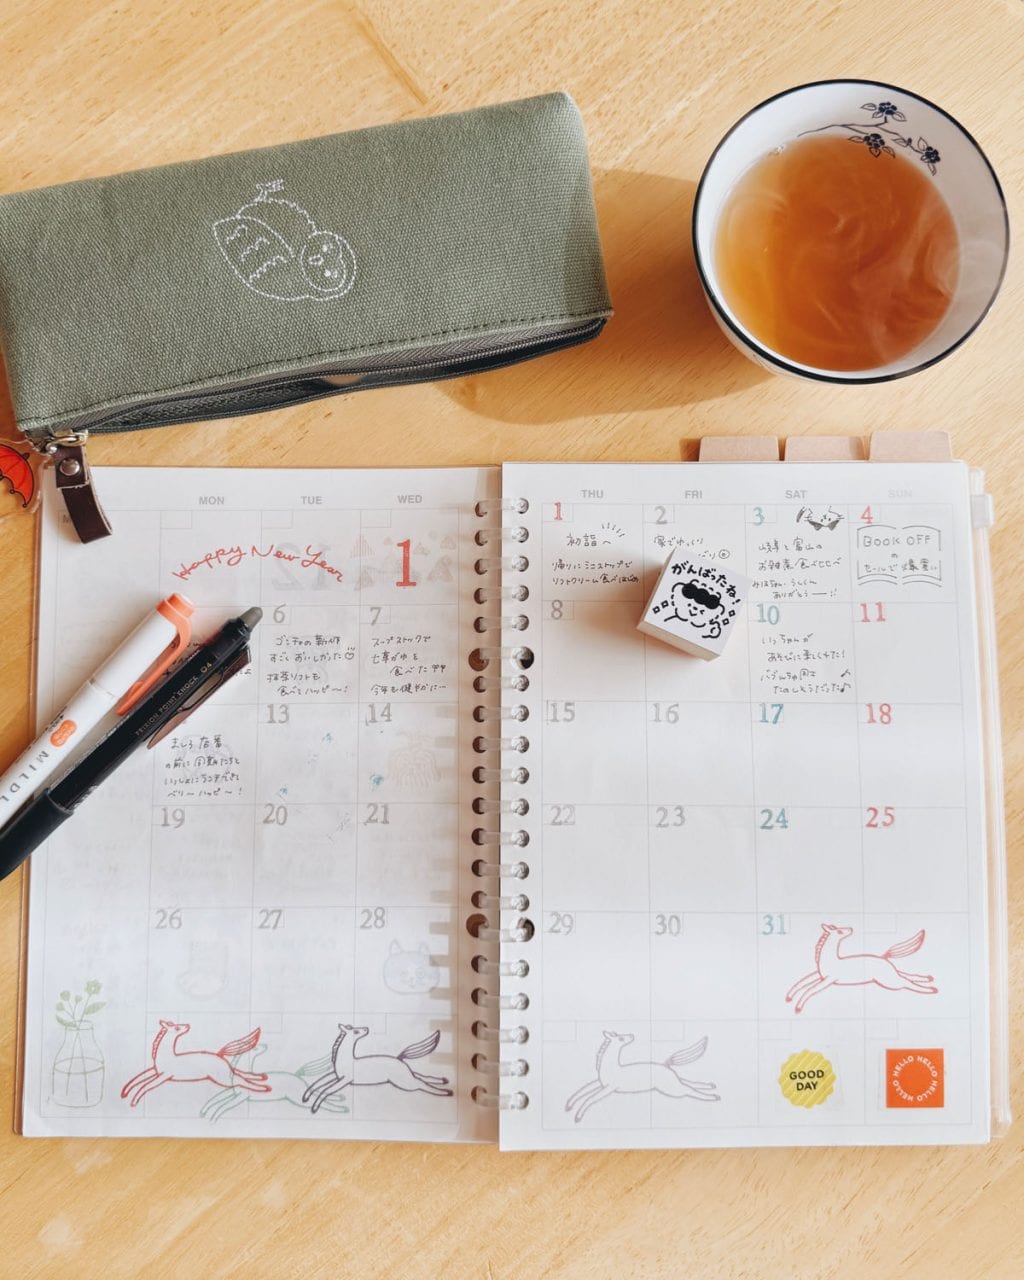 MON TUE WED
Happy New Year
1
6
ゴンチャの新作
すごくおいしかった♡
抹茶ソフトも
食べてハッピ〜!
7
スープストックで
七草がゆを
食べた
今年も健やかに…
13
14
よしろ店番
の前に同期たちと
いっしょにランチできて
ベリーハッピー!
19
20
21
26
27
28
FRIXION POINT KNOCK 04
MILDL
THU FRI SAT SUN
1
初詣へ
帰りにミニストップで
ソフトクリーム食べはじめ
2
家でゆっくり
3
岐阜と富山の
お雑煮食べたべ
ありがとう
4
BOOK OFF
の
セールで爆買い
がんばったね!
8
10
いっちゃんが
あそびに来てくれた!
たのしそうだった♪
11
15
16
17
18
22
23
24
25
29
30
31
GOOD
DAY
HELLO HELLO HELLO HELLO HELLO